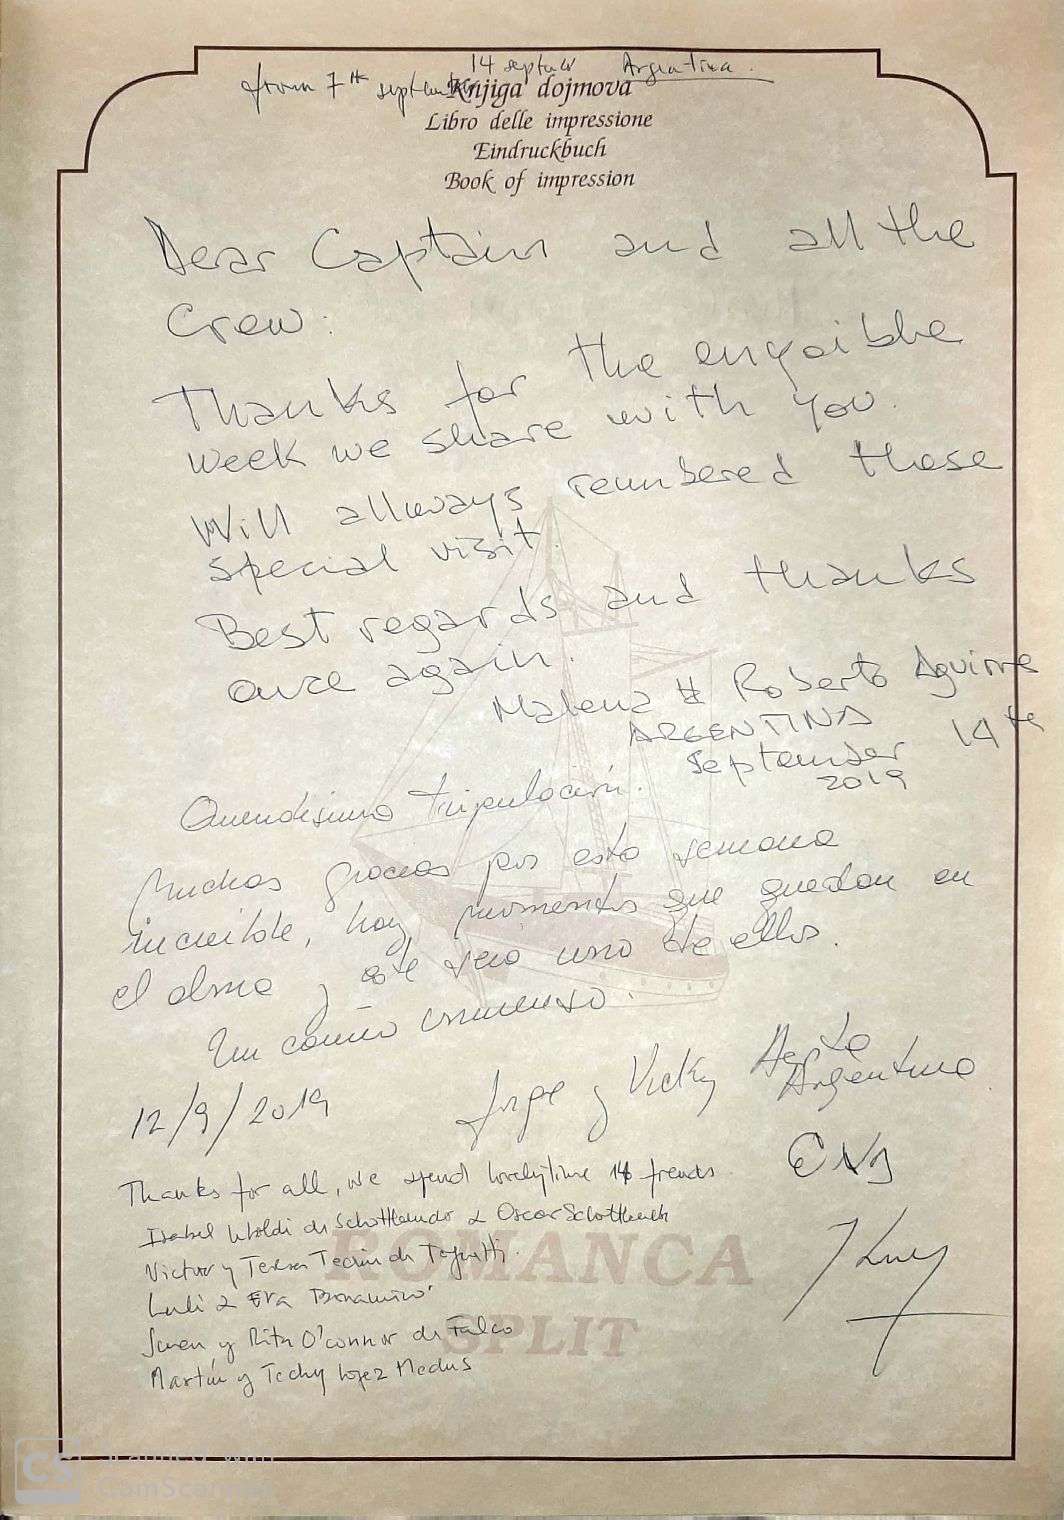 from 7th september 14 septemb Argentina.
Knjiga dojmova
Libro delle impressione
Eindruckbuch
Book of impression
Dear Captain and all the
Crew:
Thanks for the enyoibble
week we share with you.
Will allways reunbered these
special visit.
Best regards and thanks
once again.
Malena # Roberto Aguirre
ARGENTINA
September 14th
2019
Queridísima tripulación.
Muchas gracias por esta semana
increible, hay momentos que quedan en
el alma y este será uno de ellos.
Un cariño inmenso.
Jorge y Vicky
Argentina
12/9/2019
Thanks for all, we spend lovely time 14 frends
Isabel de Schottlender & Oscar Schottlender
Victor y Teresa
Luli & Eva
y Rita O'connor de Falco
Martín y Techy Lopez
ROMANCA
SPLIT
CS
Scanned with
CamScanner